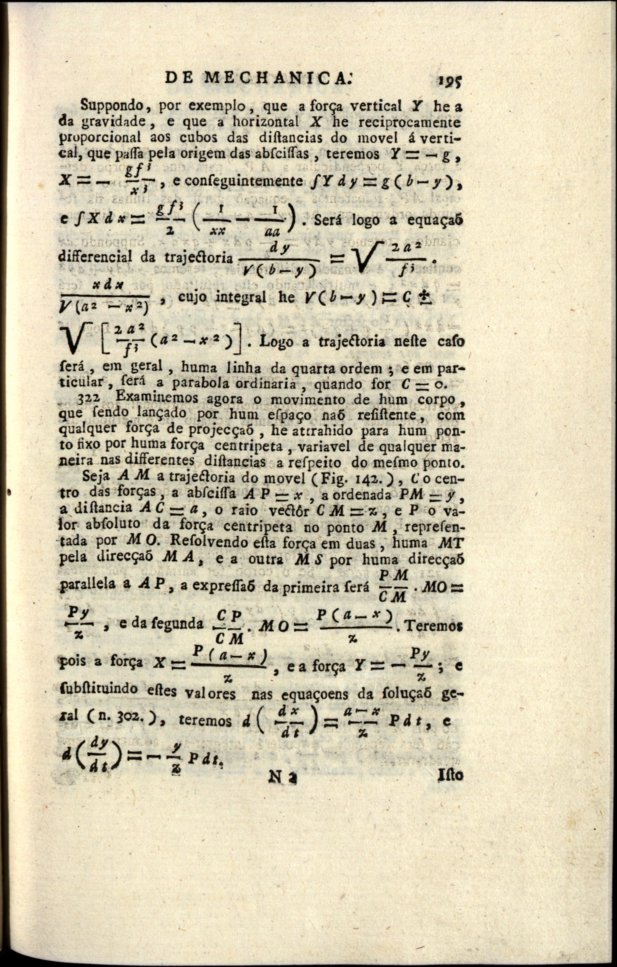 DE MECHANICA. 195
Suppondo, por exemplo, que a força vertical Y he a
da gravidade, e que a horizontal X he reciprocamente
proporcional aos cubos das distancias do movel á verti-
cal, que passa pela origem das abscissas, teremos Y = — g,
X = — gf³/x³, e conseguintemente ∫Y dy = g (b — y),
e ∫X dx = gf³/2 (1/xx — 1/aa). Será logo a equaçaõ
differencial da trajectoria dy/√(b — y) = √ 2a²/f³ .
xdx/√(a² — x²), cujo integral he √(b — y) = C ±
√ [2a²/f³ (a² — x²)]. Logo a trajectoria neste caso
será, em geral, huma linha da quarta ordem; e em par-
ticular, será a parabola ordinaria, quando for C = 0.
322 Examinemos agora o movimento de hum corpo,
que sendo lançado por hum espaço naõ resistente, com
qualquer força de projecçaõ, he attrahido para hum pon-
to fixo por huma força centripeta, variavel de qualquer ma-
neira nas differentes distancias a respeito do mesmo ponto.
Seja A M a trajectoria do movel (Fig. 142.), C o cen-
tro das forças, a abscissa A P = x, a ordenada PM = y,
a distancia A C = a, o raio vectór C M = z, e P o va-
lor absoluto da força centripeta no ponto M, represen-
tada por M O. Resolvendo esta força em duas, huma MT
pela direcçaõ M A, e a outra M S por huma direcçaõ
parallela a A P, a expressaõ da primeira será PM/CM . MO =
Py/z, e da segunda CP/CM . MO = P(a — x)/z. Teremos
pois a força X = P(a — x)/z, e a força Y = — Py/z; e
substituindo estes valores nas equaçoens da soluçaõ ge-
ral (n. 302.), teremos d (dx/dt) = a — x/z Pdt, e
d (dy/dt) = — y/z Pdt.
N 2 Isto